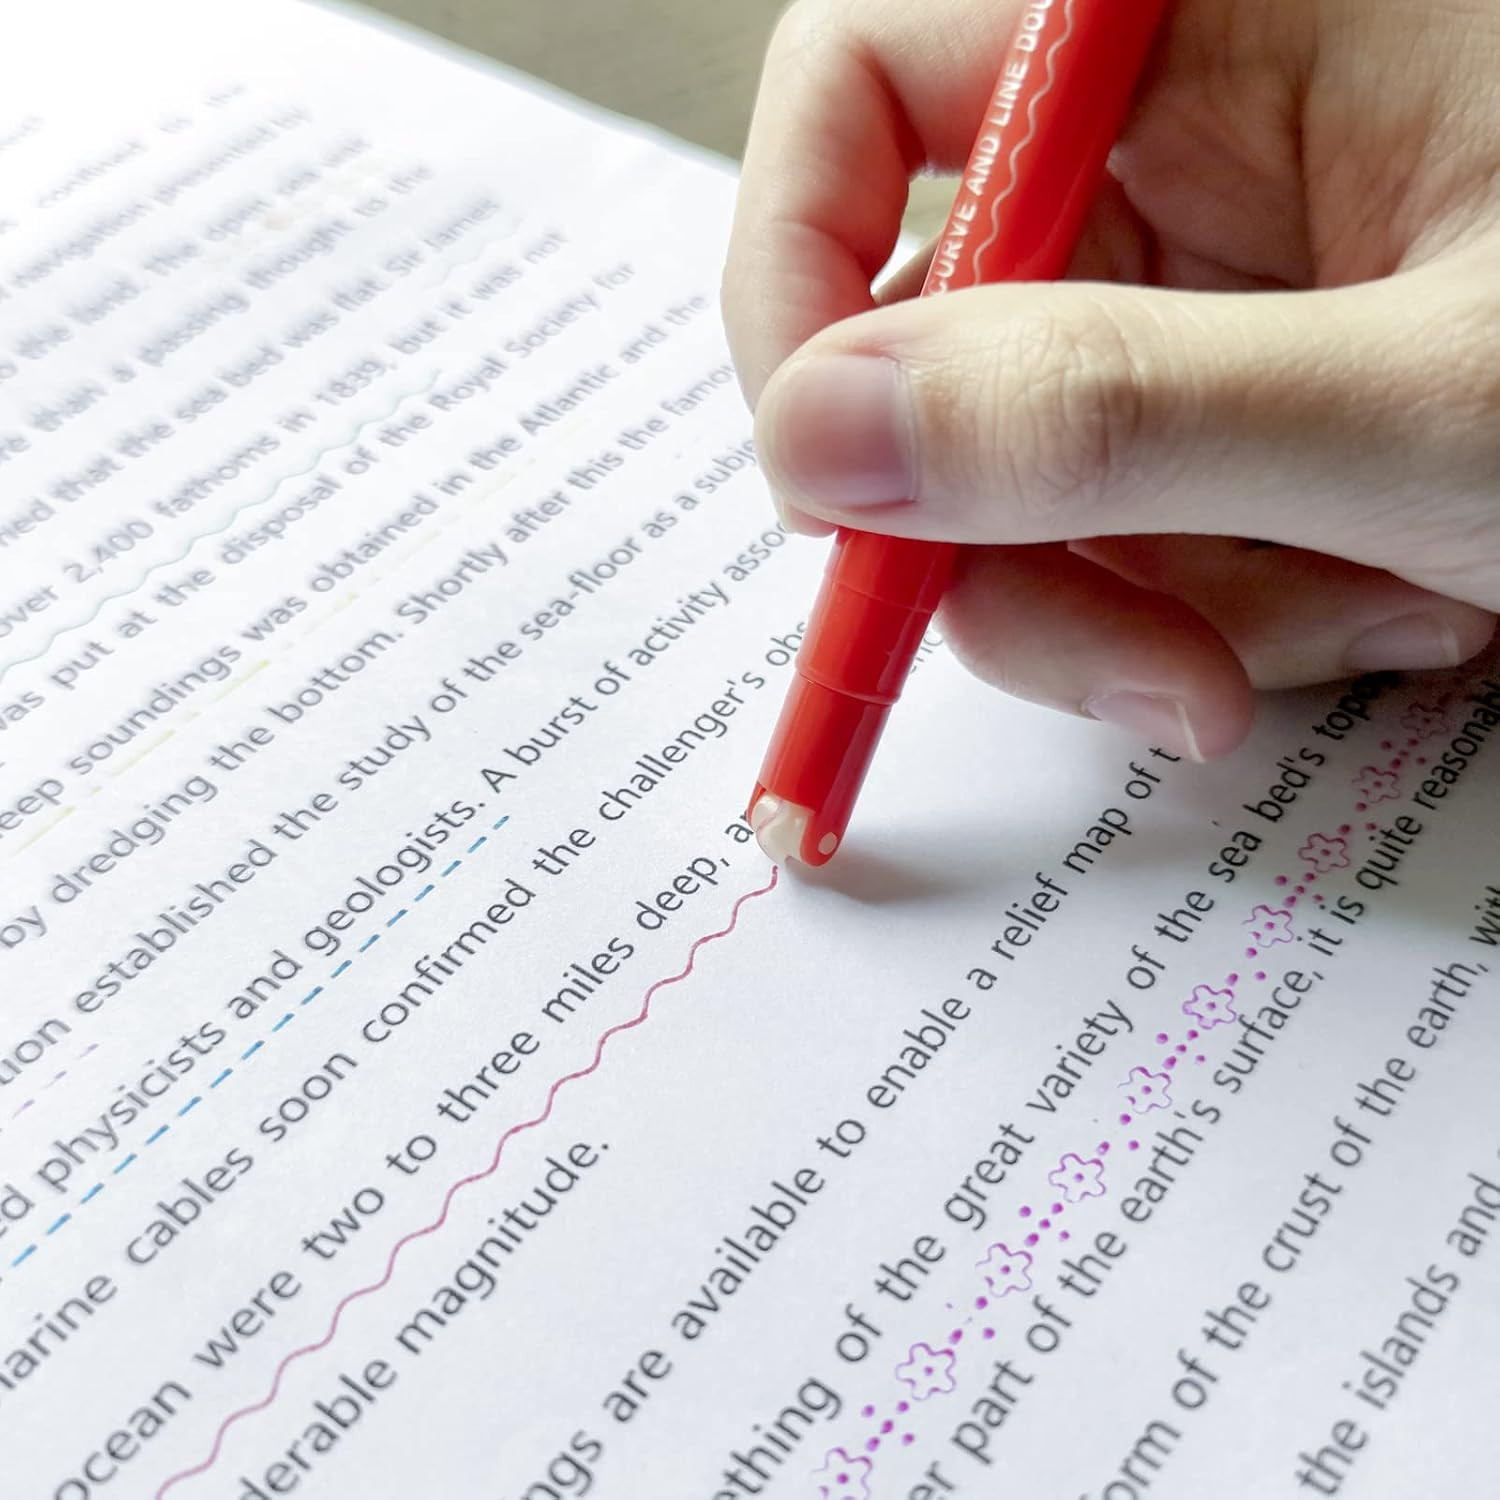 confined to the
navigation presented by
the land. the open sea
than a passing thought to the
that the sea bed was flat. Sir James
over 2,400 fathoms in 1839, but it was not
was put at the disposal of the Royal Society for
soundings was obtained in the Atlantic and the
by dredging the bottom. Shortly after this the famou
established the study of the sea-floor as a subje
physicists and geologists. A burst of activity asso
arine cables soon confirmed the challenger's obs
ocean were two to three miles deep, a
derable magnitude.
ngs are available to enable a relief map of t
ething of the great variety of the sea bed's topo
er part of the earth's surface, it is quite reasonabl
orm of the crust of the earth, wit
the islands and
CURVE AND LINE DOU